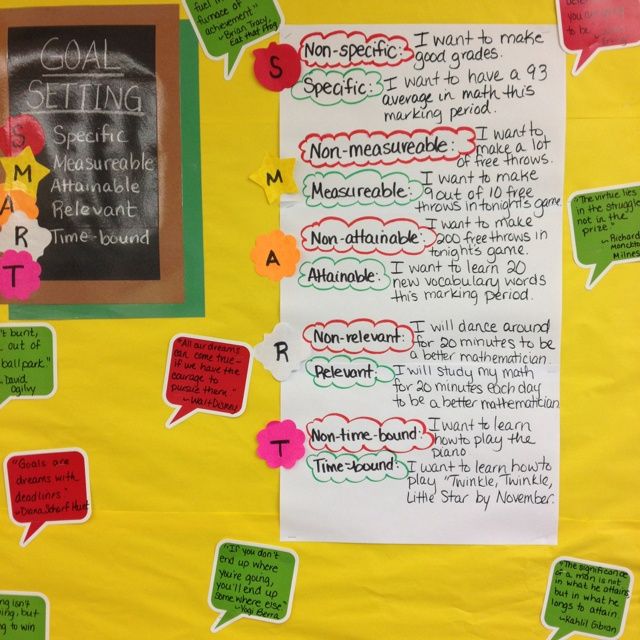 GOAL
SETTING
S Specific
M Measureable
A Attainable
R Relevant
T Time-bound
furnace of
achievement."
-Brian Tracy,
Eat that Frog
S
Non-specific: I want to make
good grades.
Specific: I want to have a 93
average in math this
marking period.
M
Non-measureable: I want to
make a lot
of free throws.
Measureable: I want to make
9 out of 10 free
throws in tonight's game.
A
Non-attainable: I want to make
200 free throws in
tonight's game.
Attainable: I want to learn 20
new vocabulary words
this marking period.
R
Non-relevant: I will dance around
for 20 minutes to be
a better mathematician.
Relevant: I will study my math
for 20 minutes each day
to be a better mathematician.
T
Non-time-bound: I want to learn
how to play the
piano
Time-bound: I want to learn how to
play "Twinkle, Twinkle,
Little Star by November.
to be
"The virtue lies
in the struggle,
not in the
prize"
~Richard
Monckton
Milnes
bunt,
out of
ball park"
~David
Ogilvy
"All our dreams
can come true-
if we have the
courage to
pursue them."
~Walt Disney
"Goals are
dreams with
deadlines"
~Diana Scharf Hunt
"If you don't
end up where
you're going,
you'll end up
somewhere else"
~Yogi Berra
"The significance
of a man is not
in what he attains
but in what he
longs to attain
~Kahlil Gibran
isn't
but
to win